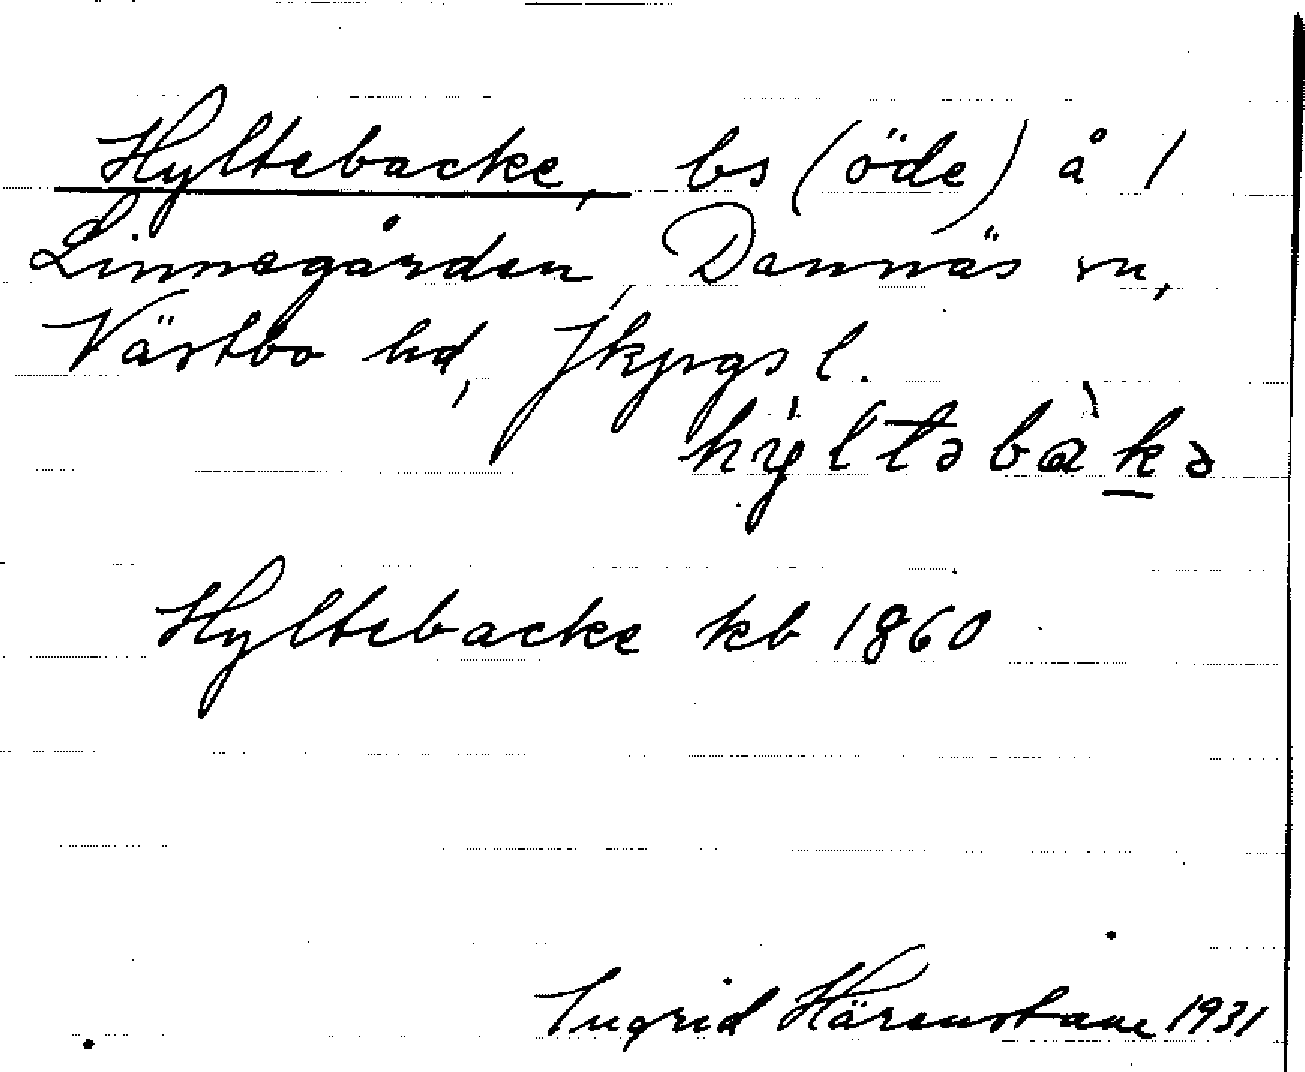 Hyltebacke, bs (öde) å 1
Linnegården, Dannäs sn,
Västbo hd, Jkpgs l.
hýltəbàkə
Hyltebacke kb 1860
Ingrid Härenstam 1931